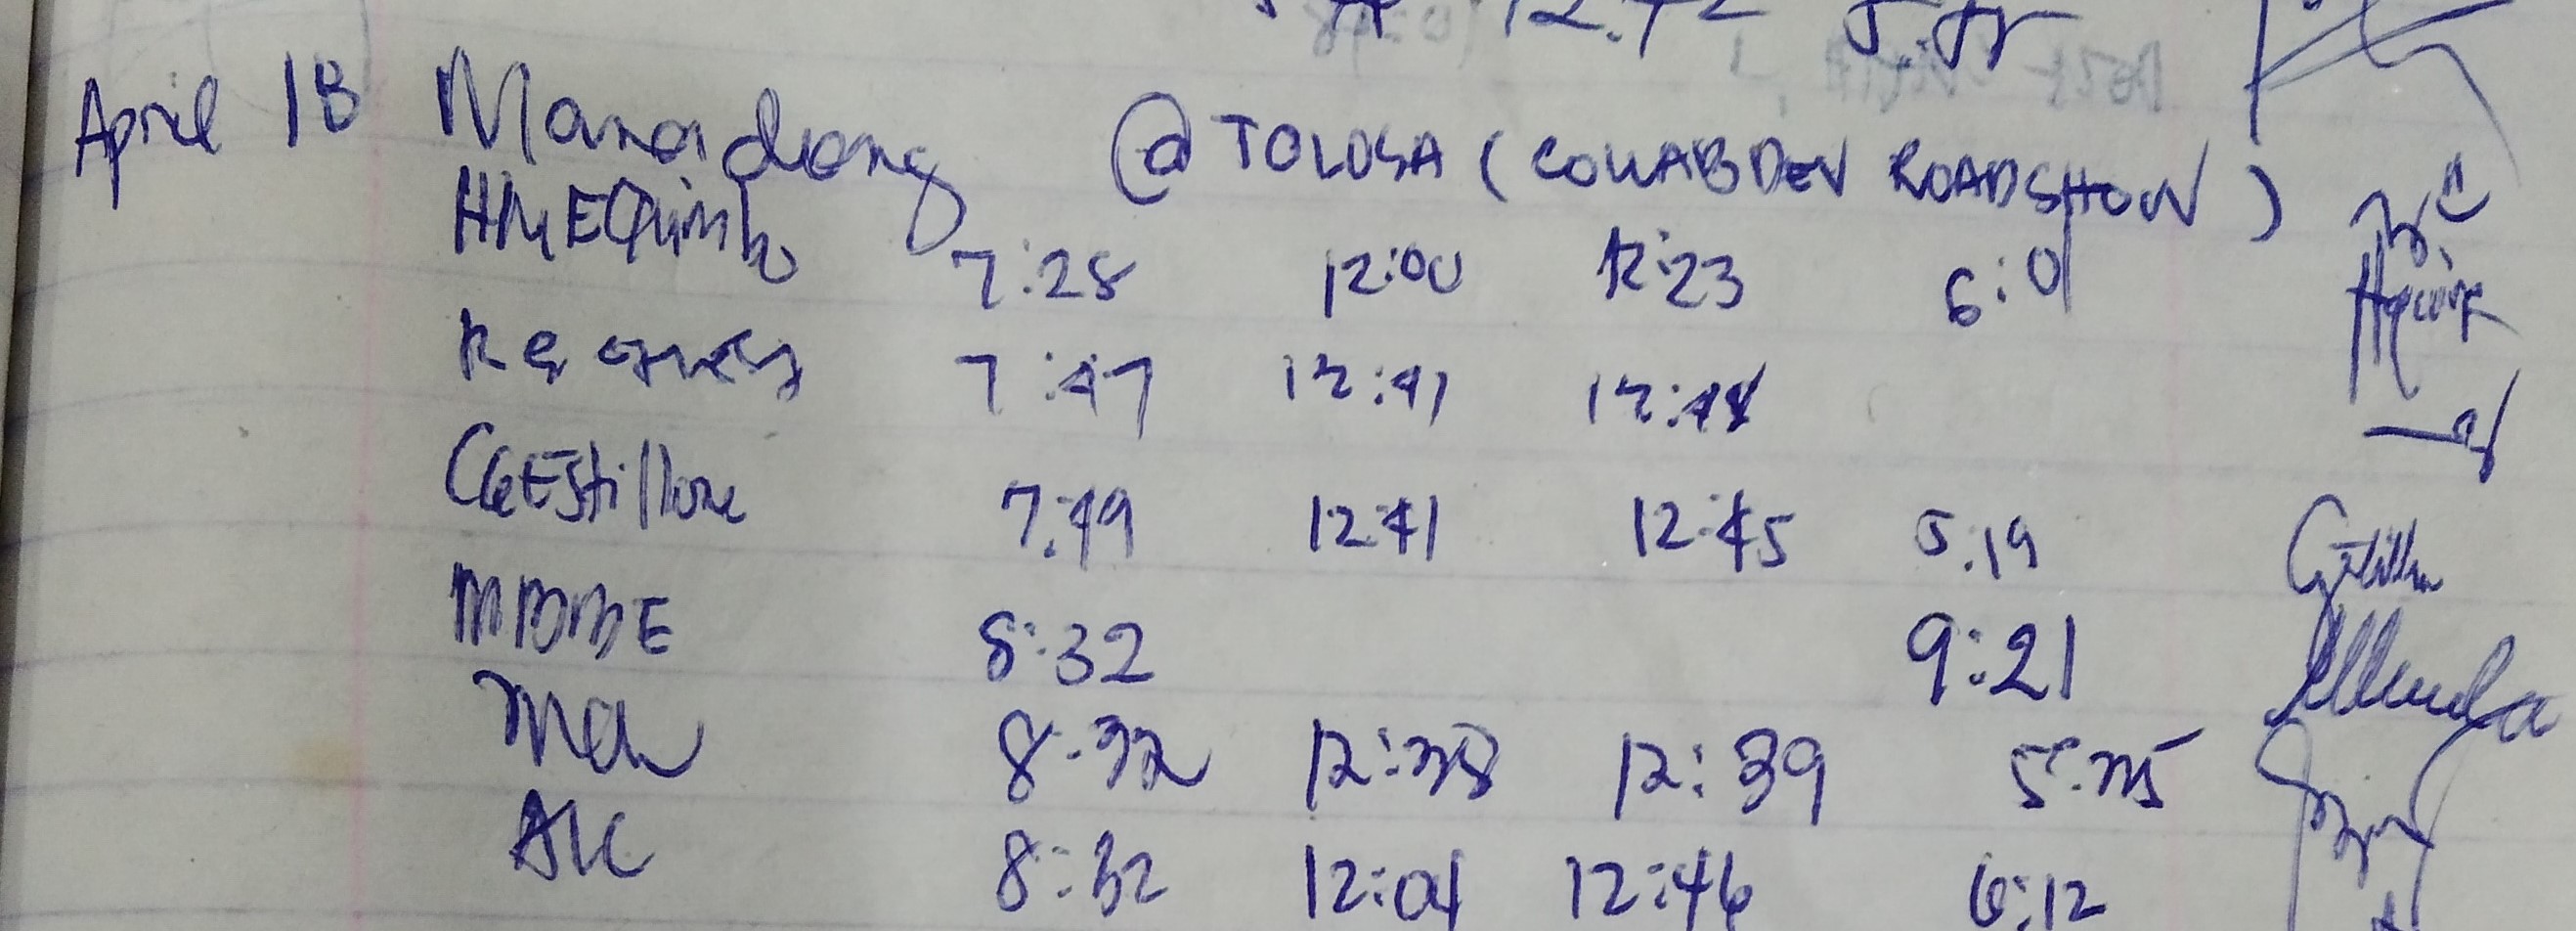 12:42 5:55
April 18 Manandong @ TOLOSA (COLLABDEV ROADSHOW)
HMEQuimbo 7:28 12:00 12:23 6:01
7:47 12:41 12:44
CGEstillore 7:49 12:41 12:45 5:19
MDME 8:32 9:21
8:32 12:38 12:39 5:35
AKC 8:32 12:01 12:46 6:12